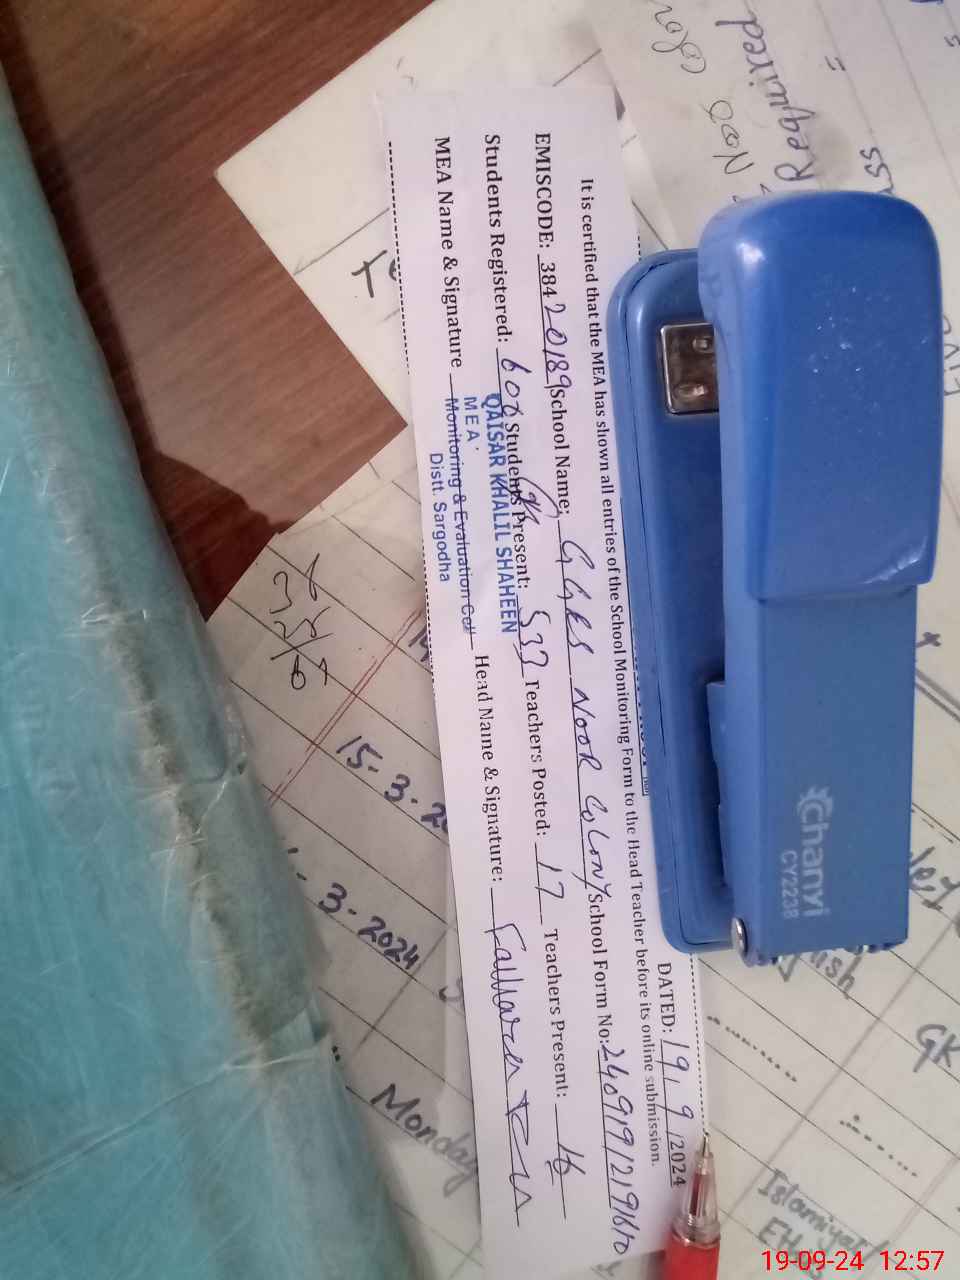 DATED: 19/9/2024
It is certified that the MEA has shown all entries of the School Monitoring Form to the Head Teacher before its online submission.
EMISCODE: 38420189 School Name: GGES NOOR COLONY School Form No:
Students Registered: Students Present: 533 Teachers Posted: 17 Teachers Present: 16
MEA Name & Signature Head Name & Signature:
QAISAR KHALIL SHAHEEN
MEA
Monitoring & Evaluation Cell
Distt. Sargodha
Chanyi
CY2238
Required
Not
15-3-20
-3-2024
Monday
GK
Islamiyat
19-09-24 12:57